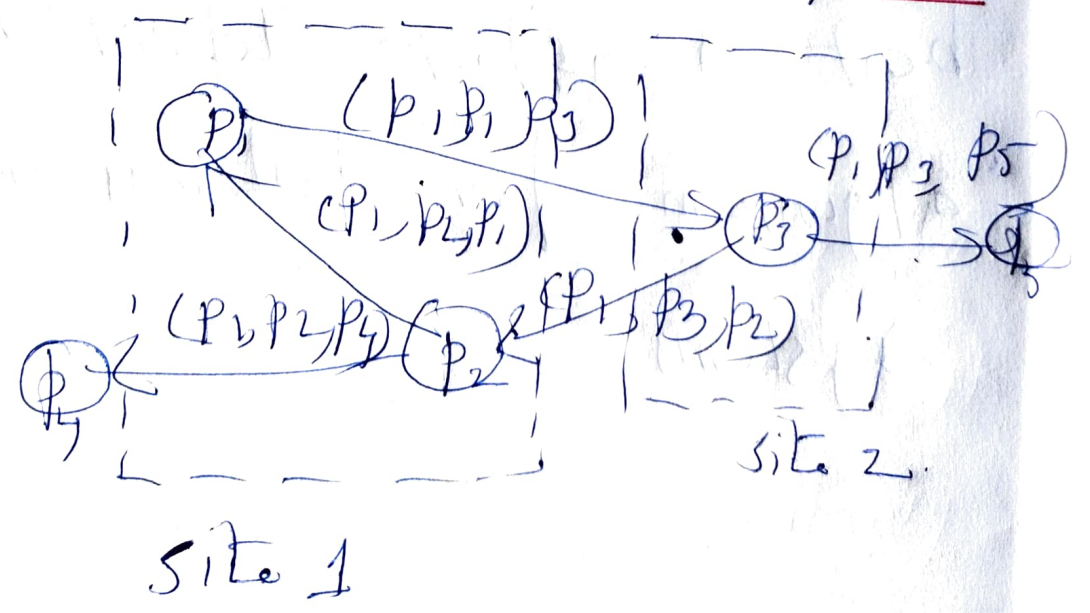 (P1, P1, P3)
P1
(P1, P3, P5)
(P1, P2, P1)
P3
P5
(P1, P2, P4)
(P1, P3, P2)
P2
P4
Site 2.
Site 1